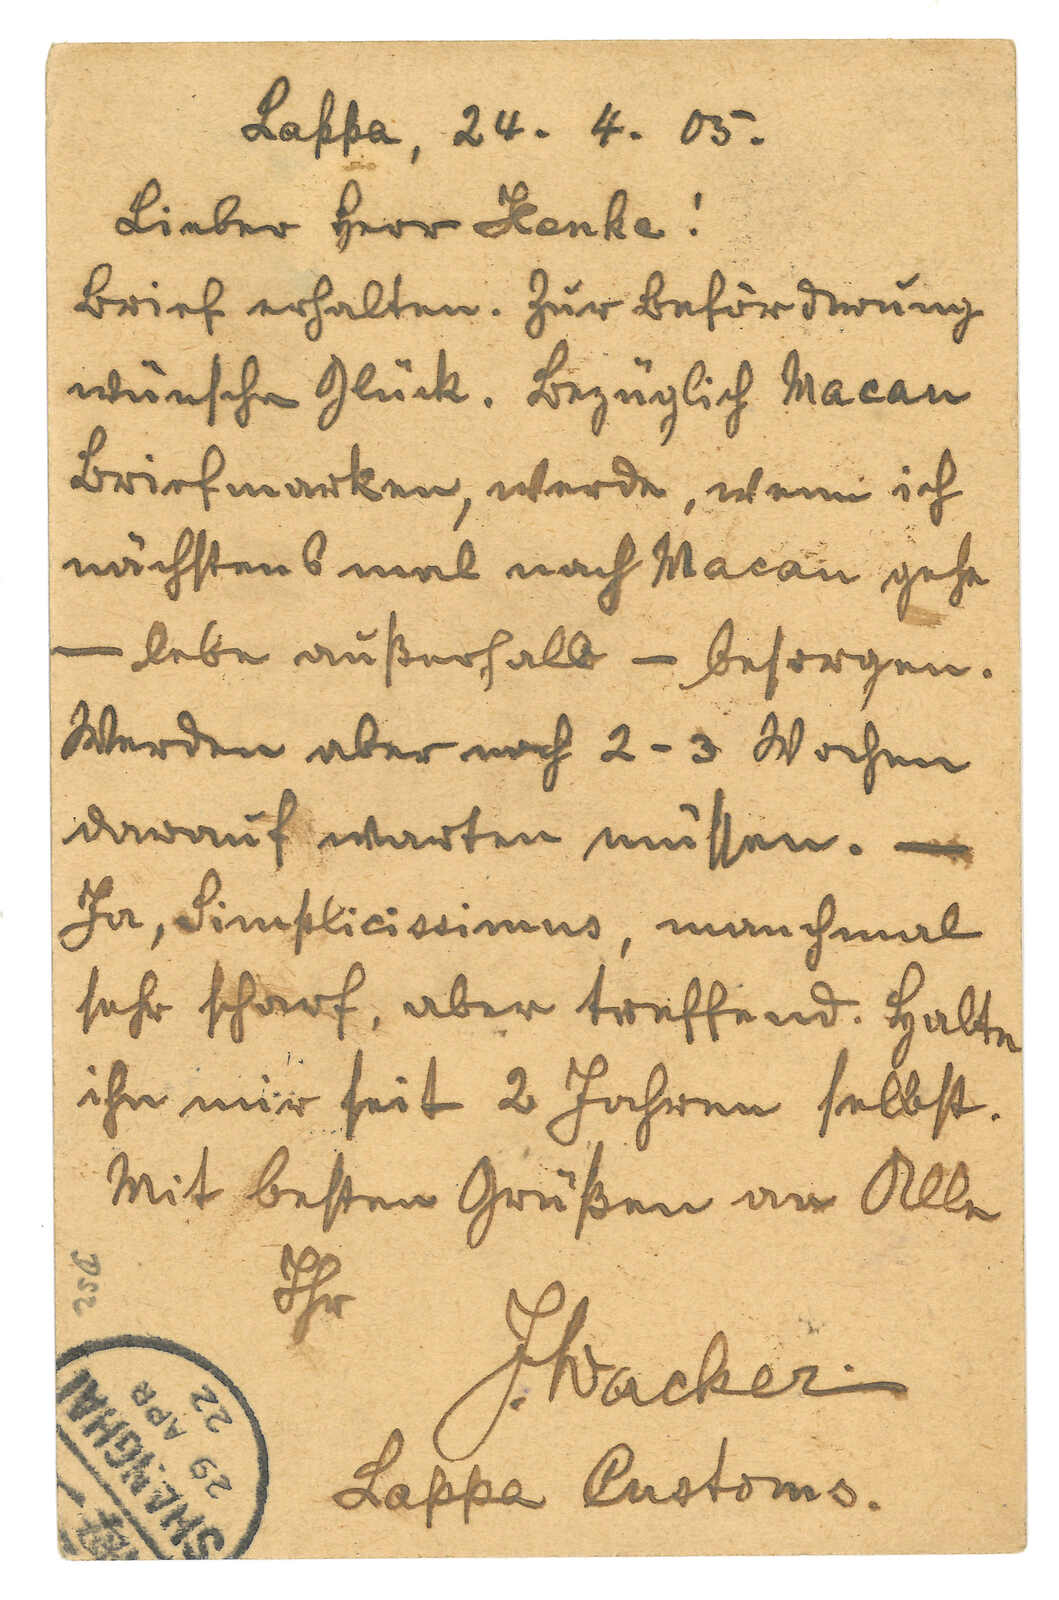 Lappa, 24. 4. 05.
Lieber Herr Henke!
Brief erhalten. Zur Beförderung
wünsche Glück. Bezüglich Macau
Briefmarken, werde, wenn ich
nächstens mal nach Macau gehe
— lebe außerhalb — besorgen.
Werden aber noch 2-3 Wochen
darauf warten müssen. —
Ja, Simplicissimus, manchmal
sehr scharf, aber treffend. Halte
ihn mir seit 2 Jahren selbst.
Mit besten Grüßen an Alle
Ihr
J. Wacker
Lappa Customs.
SHANGHAI
29 APR
22